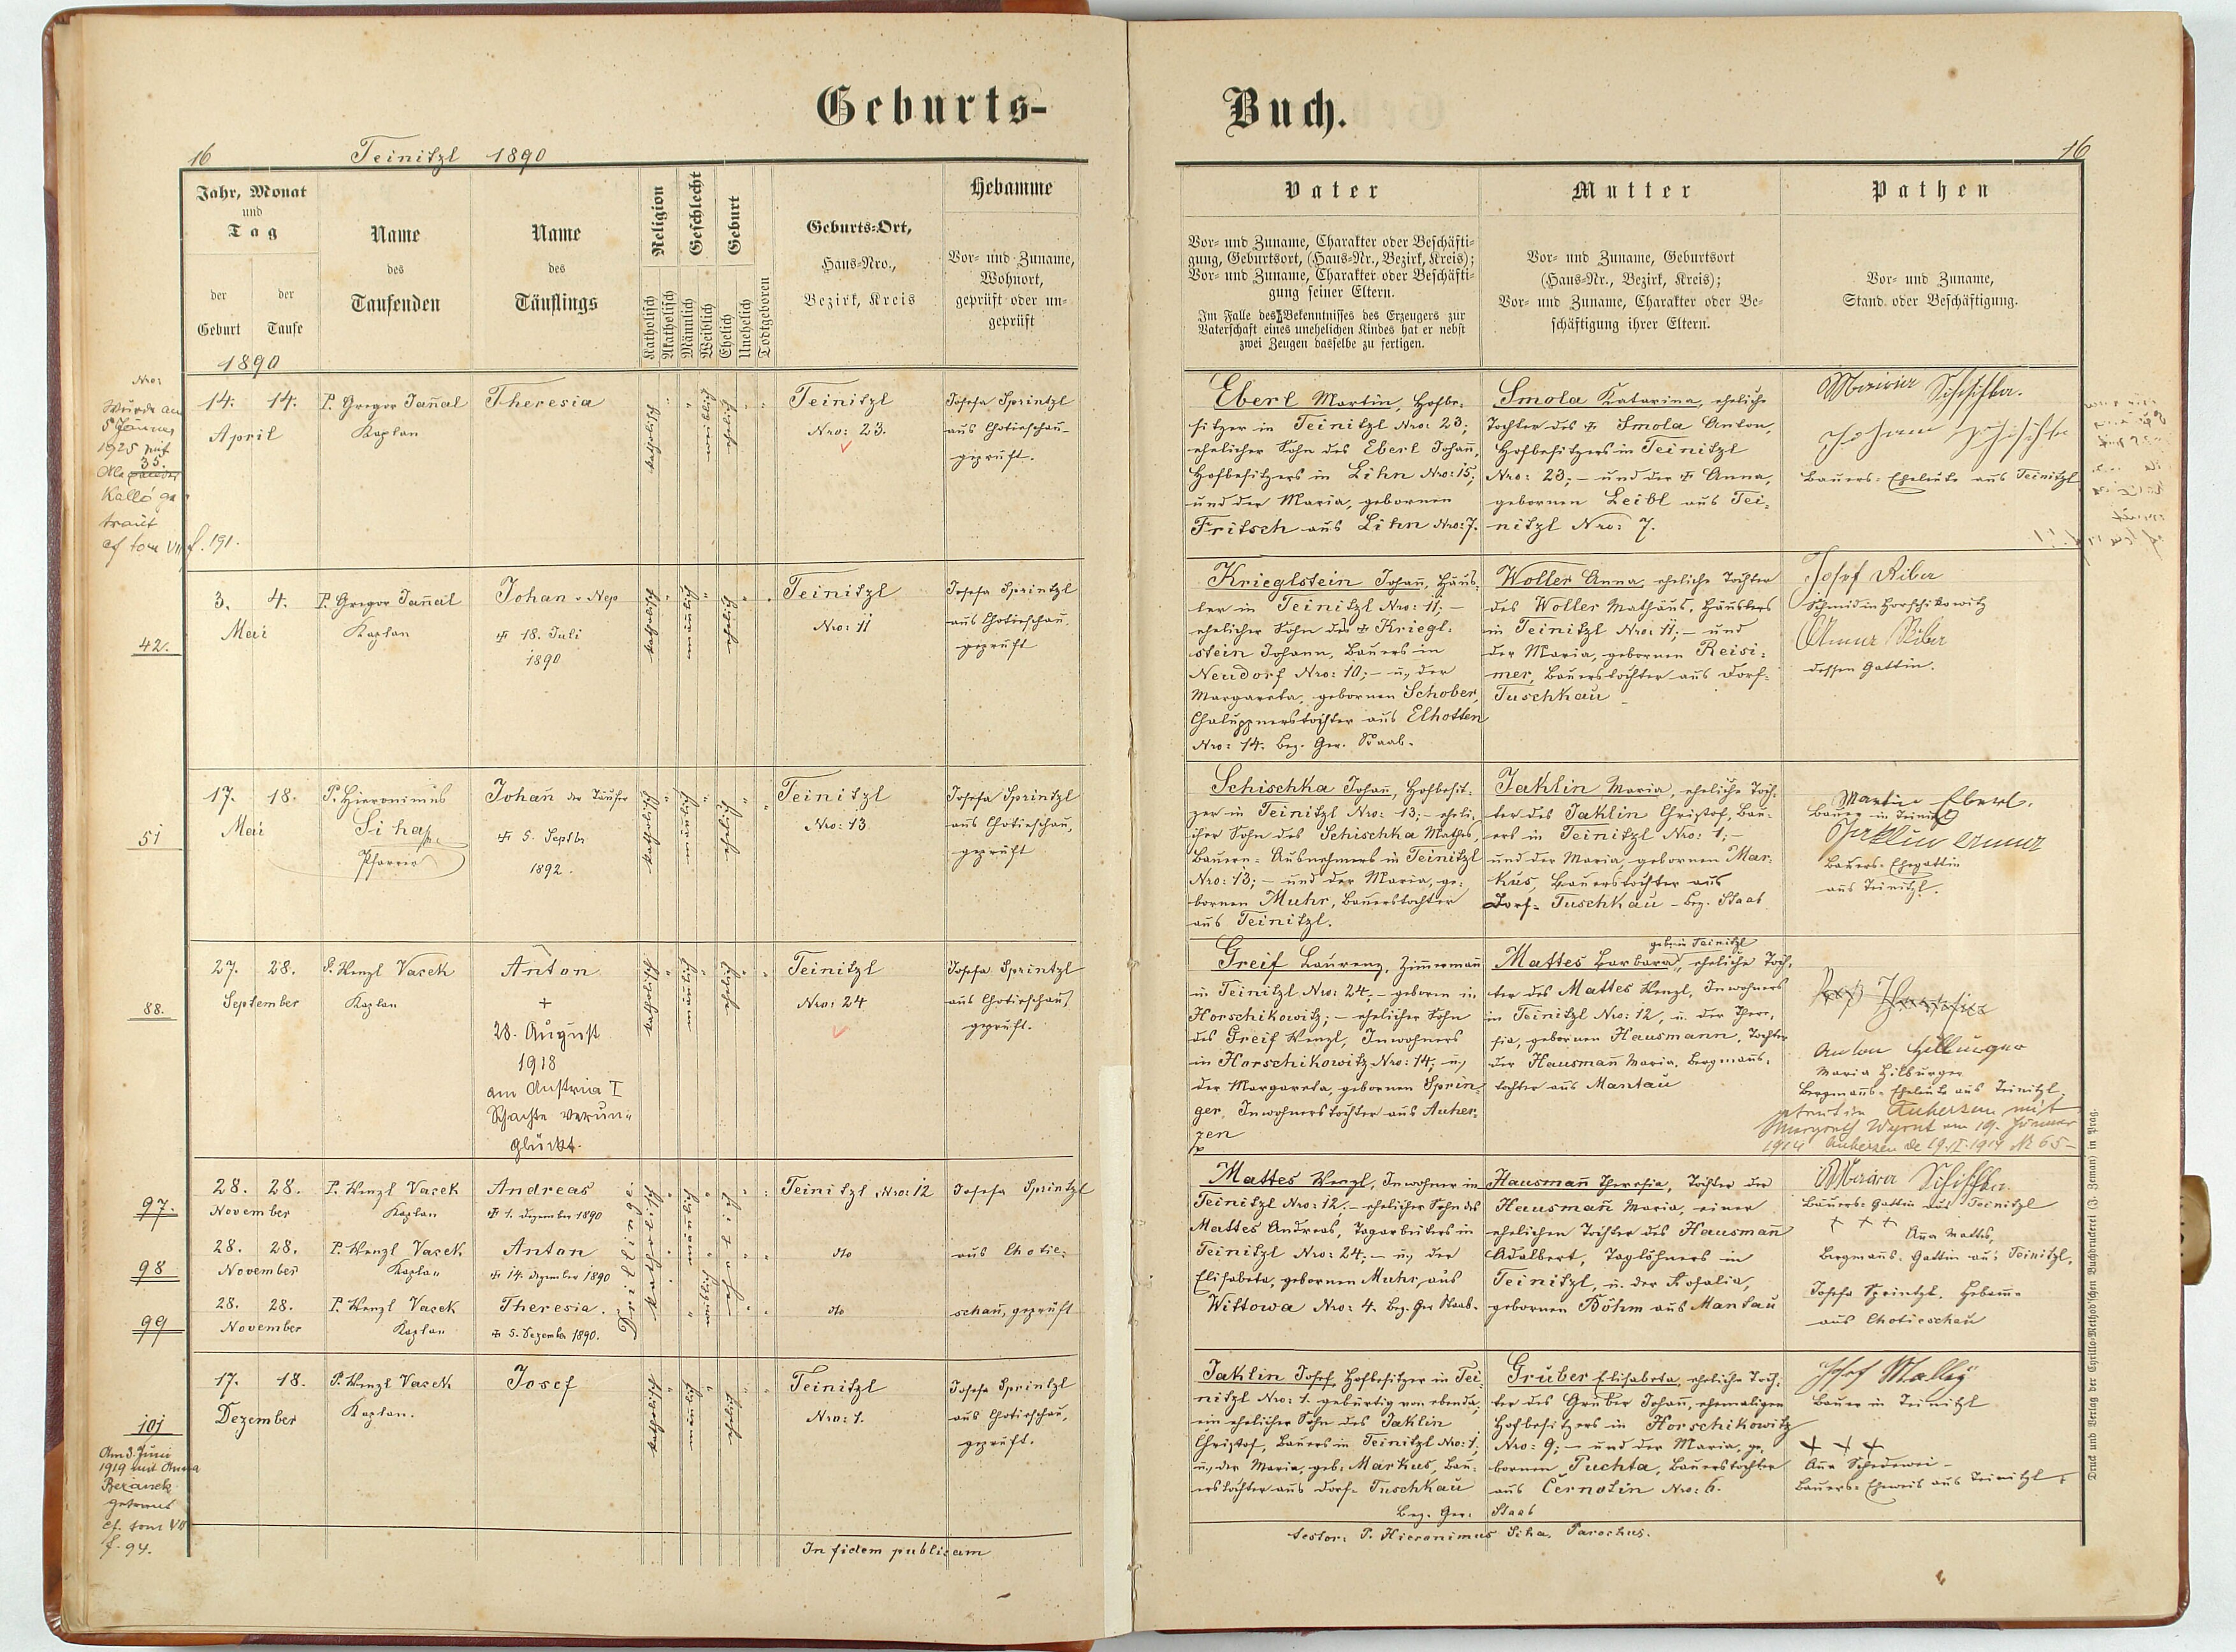 Geburts-
Buch.
16
Teinitzl 1890
16
Jahr, Monat
und
Tag
der
Geburt
der
Taufe
Name
des
Taufenden
Name
des
Täuflings
Religion
Katholisch
Akatholisch
Geschlecht
Männlich
Weiblich
Geburt
Ehelich
Unehelich
Todtgeboren
Geburts-Ort,
Haus-Nro.,
Bezirk, Kreis
Hebamme
Vor- und Zuname,
Wohnort,
geprüft oder un-
geprüft
Vater
Vor- und Zuname, Charakter oder Beschäfti-
gung, Geburtsort, (Haus-Nr., Bezirk, Kreis);
Vor- und Zuname, Charakter oder Beschäfti-
gung seiner Eltern.
Im Falle des Bekenntnisses des Erzeugers zur
Vaterschaft eines unehelichen Kindes hat er nebst
zwei Zeugen dasselbe zu fertigen.
Mutter
Vor- und Zuname, Geburtsort
(Haus-Nr., Bezirk, Kreis);
Vor- und Zuname, Charakter oder Be-
schäftigung ihrer Eltern.
Pathen
Vor- und Zuname,
Stand oder Beschäftigung.
1890
Nro:
Wurde am
5 Jänner
1925 mit
35.
Kalló ge
traut
cf tom VII f. 191.
14. 14.
April
P. Gregor Jan̄al
Kaplan
Theresia
katholisch
weiblich
ehelich
Teinitzl
Nro: 23.
Josefa Sprintzl
aus Chotieschau
geprüft.
Eberl Martin, Hofbe-
sitzer in Teinitzl Nro: 23;
ehelicher Sohn des Eberl Johan̄,
Hofbesitzers in Lihn Nro: 15;
und der Maria, gebornen
Fritsch aus Lihn Nro: 7.
Smola Katarina, eheliche
Tochter des ✝ Smola Anton,
Hofbesitzers in Teinitzl
Nro: 23; – und der ✝ Anna,
gebornen Leibl aus Tei-
nitzl Nro: 7.
Schischka
Johann Schischka
Bauers-Eheleute aus Teinitzl
42.
3. 4.
Mai
P. Gregor Jan̄al
Kaplan
Johan v Nep
✝ 18. Juli
1890
katholisch
männlich
ehelich
Teinitzl
Nro: 11
Josefa Sprintzl
aus Chotieschau,
geprüft
Krieglstein Johan̄, Häus-
ler in Teinitzl Nro: 11; –
ehelicher Sohn des ✝ Kriegl-
stein Johann, Bauers in
Neudorf Nro: 10; – u, der
Margareta, gebornen Schober,
Chaluppnerstochter aus Elhotten
Nro: 14. Bez. Ger. Staab.
Woller Anna, eheliche Tochter
des Woller Mathäus, Häuslers
in Teinitzl Nro: 11; – und
der Maria, gebornen Reisi-
mer, Bauerstochter aus Dorf-
Tuschkau
Josef Riber
Schmid in Horschikowitz
Anna Riber
dessen Gattin.
51
17. 18.
Mai
P. Hieronimus
Siha
Pfarrer
Johan̄ der Täufer
✝ 5. Septbr
1892.
katholisch
männlich
ehelich
Teinitzl
Nro: 13
Josefa Sprintzl
aus Chotieschau,
geprüft
Schischka Johan̄, Hofbesit-
zer in Teinitzl Nro: 13; – eheli-
cher Sohn des Schischka Mathes,
Bauern-Ausnehmers in Teinitzl
Nro: 13; – und der Maria, ge-
bornen Muhr, Bauerstochter
aus Teinitzl.
Jaklin Maria, eheliche Toch-
ter des Jaklin Christof, Bau-
ers in Teinitzl Nro: 1; –
und der Maria gebornen Mar-
kus, Bauerstochter aus
Dorf-Tuschkau – Bez. Staab
Martin Eberl.
Bauer in Teinitzl
Jaklin Anna
Bauers-Ehegattin
aus Teinitzl.
88.
27. 28.
September
P. Wenzl Vacek
Kaplan
Anton
+
28. August
1918
am Austria I
Schachte verun-
glückt.
katholisch
männlich
ehelich
Teinitzl
Nro: 24
Josefa Sprintzl
aus Chotieschau,
geprüft.
Greif Laurenz, Zimmerman̄
in Teinitzl Nro: 24; – geboren in
Horschikowitz; – ehelicher Sohn
des Greif Wenzl, Inwohners
in Horschikowitz Nro: 14; u,
der Margareta, gebornen Sprin-
ger, Inwohnerstochter aus Auher-
zen
geb. in Teinitzl
Mattes Barbara, eheliche Toch-
ter des Mattes Wenzl, Inwohners
in Teinitzl Nro: 12, u. der There-
sia, gebornen Hausmann, Tochter
der Hausman̄ Maria, Bergman̄s-
tochter aus Mantau
Anton Hilburger
Maria Hilburger
Bergman̄s-Eheleute aus Teinitzl
getraut in Auherzen mit
am 19. Jänner
1914 Auherzen
97.
28. 28.
November
P. Wenzl Vacek
Kaplan
Andreas
✝ 1. Dezember 1890
Drillinge
katholisch
männlich
ehelich
Teinitzl Nro: 12
Josefa Sprintzl
98
28. 28.
November
P. Wenzl Vacek
Kaplan
Anton
✝ 14. Dezember 1890
dto
aus Chotie-
99
28. 28.
November
P. Wenzl Vacek
Kaplan
Theresia.
✝ 5. Dezember 1890.
weiblich
dto
schau, geprüft
Mattes Wenzl, Inwohner in
Teinitzl Nro: 12; – ehelicher Sohn des
Mattes Andreas, Tagarbeiters in
Teinitzl Nro: 24; – u, der
Elisabeta, gebornen Muhr, aus
Wittowa Nro: 4. Bez. Ger Staab.
Hausman̄ Theresia, Tochter der
Hausman̄ Maria, einer
ehelichen Tochter des Hausman̄
Adalbert, Taglöhners in
Teinitzl, u. der Rosalia,
gebornen Böhm aus Mantau
Schischka
Bauers-Gattin aus Teinitzl
+ + +
An̄a Mattes,
Bergman̄s-Gattin aus Teinitzl.
Josefa Sprintzl, Hebam̄e
aus Chotieschau
101
Am 3. Juni
1919 mit Anna
Beranek
getraut
cf. tom VII
f. 94.
17. 18.
Dezember
P. Wenzl Vacek
Kaplan.
Josef
katholisch
männlich
ehelich
Teinitzl
Nro: 1.
Josefa Sprintzl
aus Chotieschau,
geprüft.
Jaklin Josef, Hofbesitzer in Tei-
nitzl Nro: 1. gebürtig von ebenda,
ein ehelicher Sohn des Jaklin
Christof, Bauers in Teinitzl Nro: 1;
u, der Maria, geb. Markus, Bau-
erstochter aus Dorf-Tuschkau
Bez. Ger: Staab
Gruber Elisabeta, eheliche Toch-
ter des Gruber Johan̄, ehemaligen
Hofbesitzers in Horschikowitz
Nro: 9; – und der Maria, ge-
bornen Puchta, Bauerstochter
aus Černotin Nro: 6.
Josef
Bauer in Teinitzl
+ + +
An̄a
Bauers-Eheweib aus Teinitzl
In fidem publicam
testor: P. Hieronimus Siha, Parochus.
Druck und Verlag der Cyrillo-Method'schen Buchdruckerei (J. Zeman) in Prag.